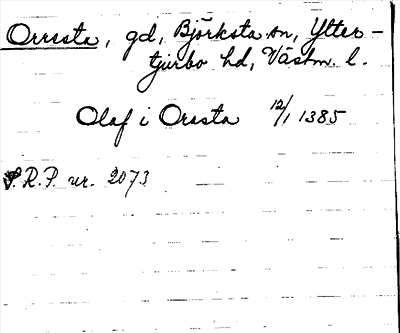 Orrsta, gd, Björksta sn, Ytter-
tjurbo hd, Västm. l.
Olaf i Orssta 12/1 1385
S.R.P. nr. 2073